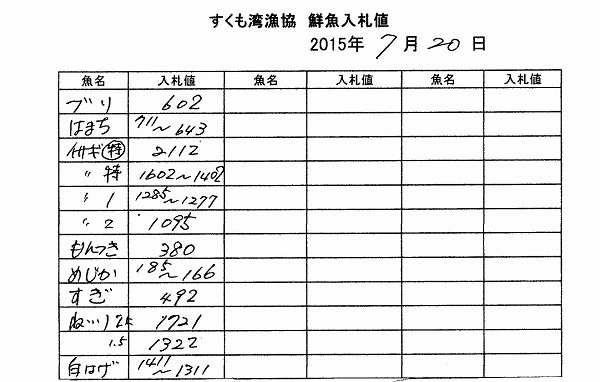 すくも湾漁協 鮮魚入札値
2015年 7月20日
魚名 入札値 魚名 入札値 魚名 入札値
ブリ 602
はまち 711～643
イサギ 特 2112
〃 特 1602～1402
〃 1 1285～1277
〃 2 1095
もんつき 380
めじか 185～166
すぎ 492
1721
1.5 1322
白はげ 1411～1311